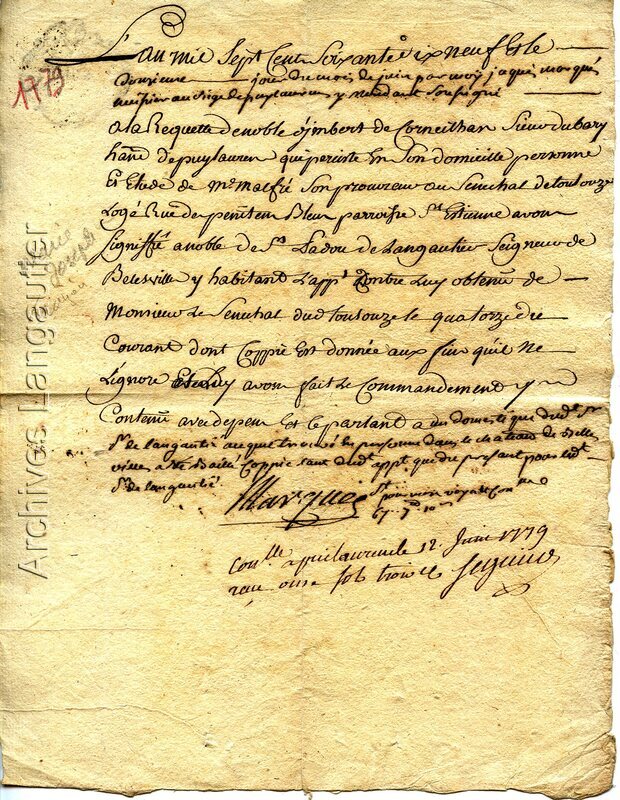 L'an mil sept cent soixante dix neuf et le
dousieme jour du mois de juin par moy jaqué marqués
huissier au siege de puylaurens y residant soussigné
1779
a la Requette de noble d'jmbert de Corneilhan Sieur du bary
hant de puylaurens qui perciste En son domicille personne
Et Etude de Me malfré son procureur au Senechal de toulouze
Logé Rue des penitens Bleus parroisse St Etienne avons
signiffié a noble de Ladou de Langautier Seigneur de
Belesville y habitant L'appt Contre luy obtenu de
Monsieur Le Senechal dud toulouze le quatorze du
Courant dont Coppie Est donnée aux fins qu'il ne
L'ignore Et luy avons fait Le Commandement y
Contenu avec depens Et ce parlant a un domestique dud Sr
Sr de langautié au quel trouvé en personne dans le chateau de belles
villes a été Baillé Coppie tant dud appt que du presant pour led
Sr de langautié
Marqués
Conlle a puilaurens le 12 Juin 1779
reçu onse sols trois d Seguine
Archives Langautier